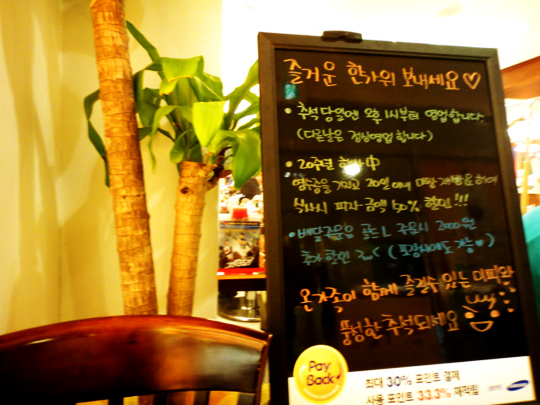 즐거운 한가위 보내세요♡
• 추석 당일엔 오후 1시부터 영업합니다.
(다른날은 정상영업 합니다)
• 20주년 행사中
영수증을 가지고 20일 이내 미팟 재방문 하여
식사시 피자 금액 50% 할인!!!
• 배달주문임 골드 L 주문시 2000원
추가할인 (포장시에도 가능♥)
온가족이 함께 즐길수 있는 미피와
풍성한 추석되세요
Pay
Back
최대 30% 포인트 결제
사용 포인트 33.3% 재적립
SAMSUNG